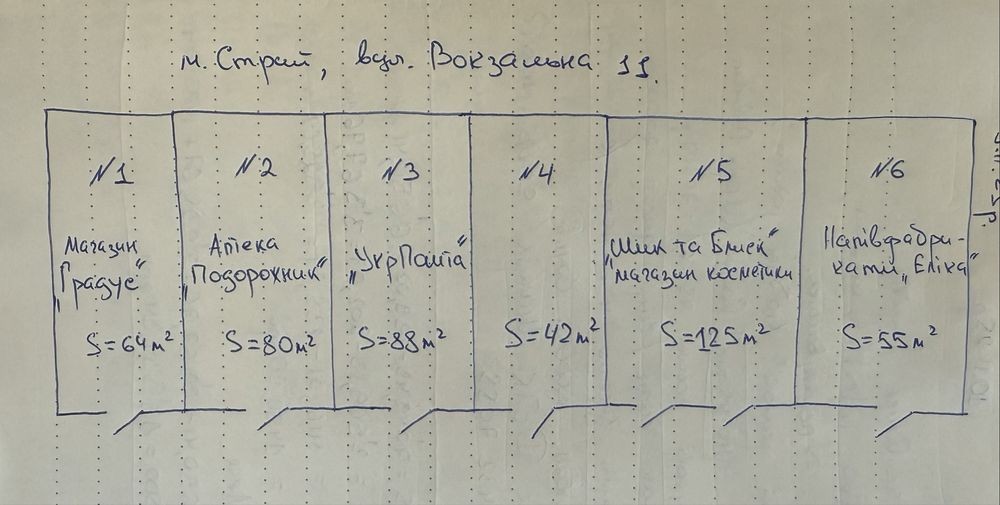 м. Стрий, вул. Вокзальна 11.
№1
№2
№3
№4
№5
№6
Магазин
„Градус“
S=64м²
Аптека
„Подорожник“
S=80м²
„УкрПошта“
S=88м²
S=42м²
„Шик та Блиск“
магазин косметики
S=125м²
Напівфабри-
кати „Еліка“
S=55м²